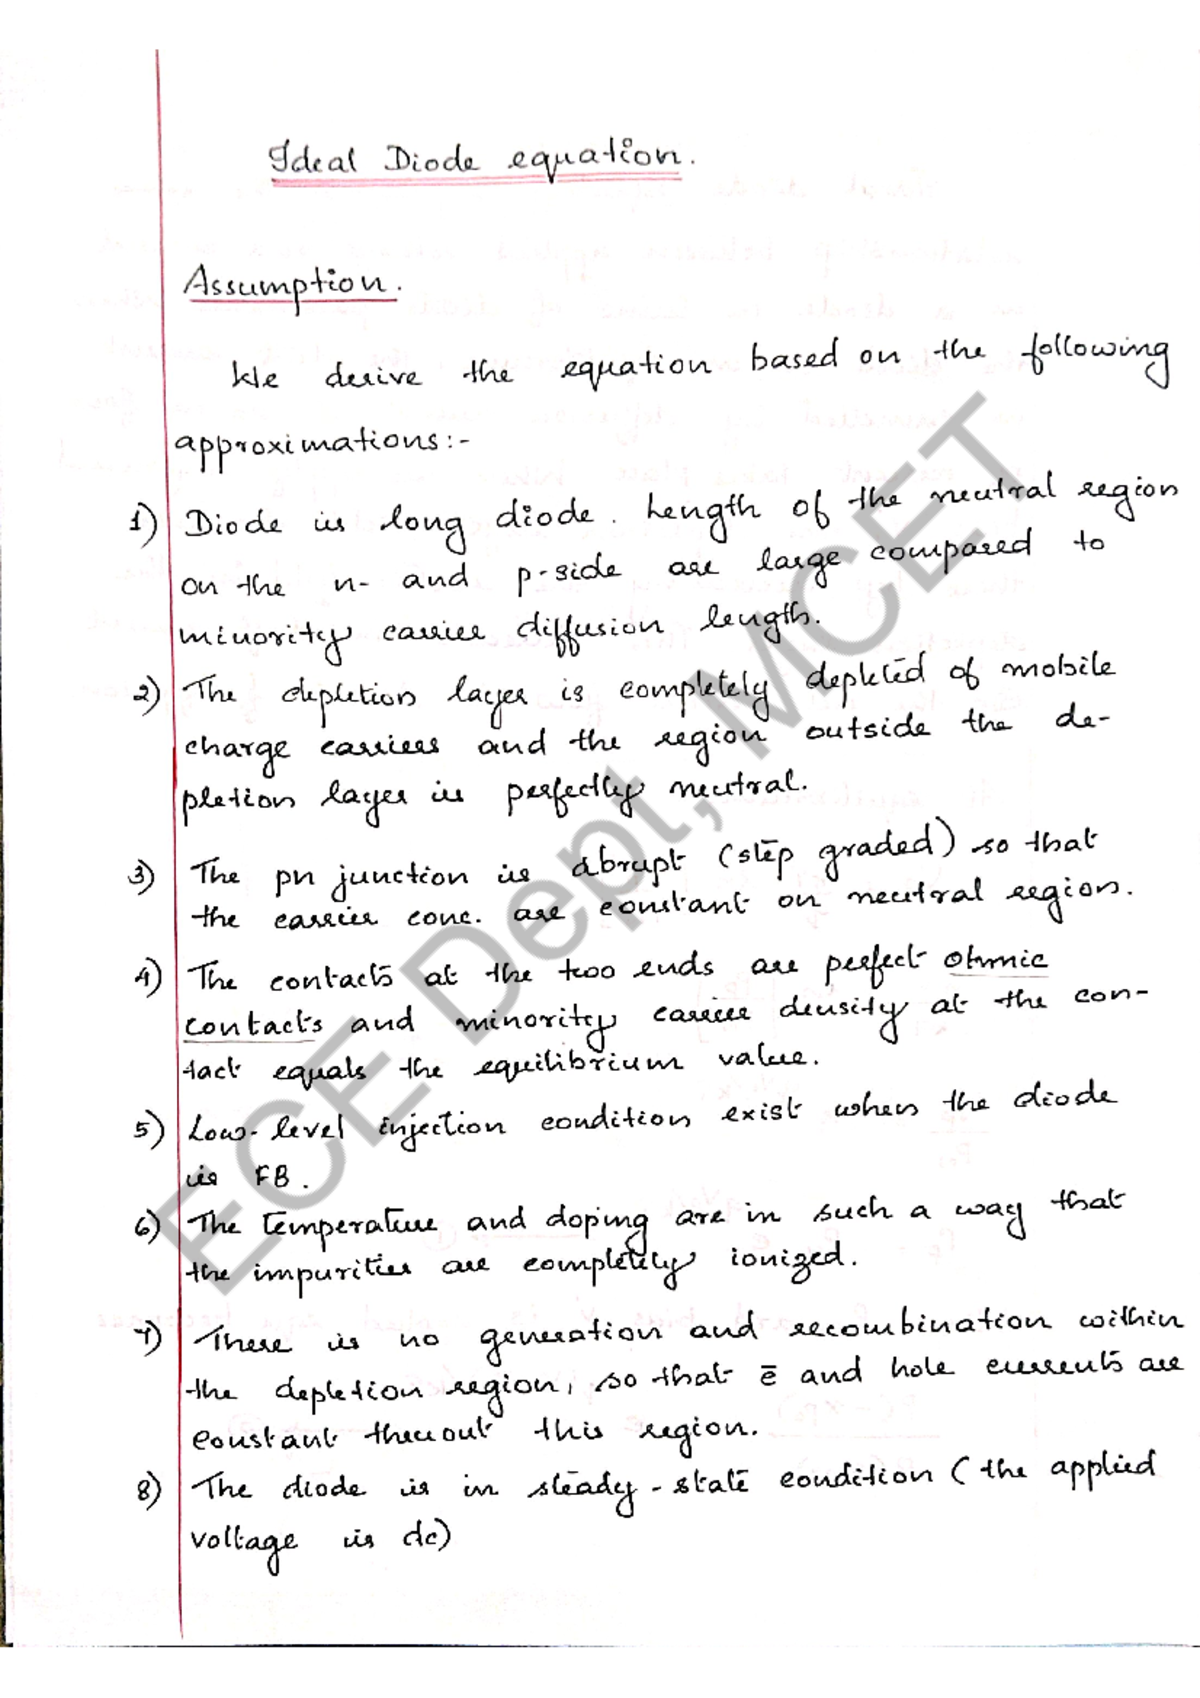 Ideal Diode equation.
Assumption.
We derive the equation based on the following
approximations:-
1) Diode is long diode. Length of the neutral region
on the n- and p-side are large compared to
minority carrier diffusion length.
2) The depletion layer is completely depleted of mobile
charge carriers and the region outside the de-
pletion layer is perfectly neutral.
3) The pn junction is abrupt (step graded) so that
the carrier conc. are constant on neutral region.
4) The contacts at the two ends are perfect ohmic
contacts and minority carrier density at the con-
tact equals the equilibrium value.
5) Low-level injection condition exist when the diode
is FB.
6) The temperature and doping are in such a way that
the impurities are completely ionized.
7) There is no generation and recombination within
the depletion region, so that ē and hole currents are
constant thruout this region.
8) The diode is in steady-state condition (the applied
voltage is dc)
ECE Dept, MCET